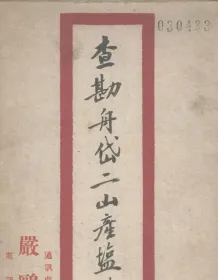 030423
查勘舟岱二山產塩
嚴
通訊處
電